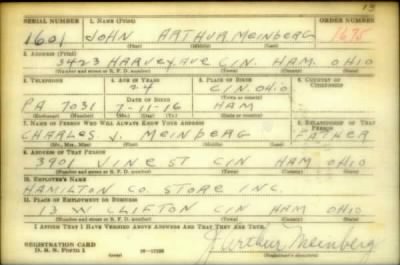 13
SERIAL NUMBER 1. NAME (Print) ORDER NUMBER
1601 JOHN ARTHUR MEINBERG 1675
(First) (Middle) (Last)
2. ADDRESS (Print)
3423 HARVEY AVE CIN. HAM. OHIO
(Number and street or R. F. D. number) (Town) (County) (State)
3. TELEPHONE 4. AGE IN YEARS 5. PLACE OF BIRTH 6. COUNTRY OF CITIZENSHIP
24 CIN. OHIO
DATE OF BIRTH (Town or county)
PA 7031 7-11-16 HAM
(Exchange) (Number) (Mo.) (Day) (Yr.) (State or country)
7. NAME OF PERSON WHO WILL ALWAYS KNOW YOUR ADDRESS 8. RELATIONSHIP OF THAT PERSON
CHARLES J. MEINBERG FATHER
(Mr., Mrs., Miss) (First) (Middle) (Last)
9. ADDRESS OF THAT PERSON
3901 VINE ST CIN HAM OHIO
(Number and street or R. F. D. number) (Town) (County) (State)
10. EMPLOYER'S NAME
HAMILTON CO. STORE INC.
11. PLACE OF EMPLOYMENT OR BUSINESS
13 W CLIFTON CIN HAM OHIO
(Number and street or R. F. D. number) (Town) (County) (State)
I AFFIRM THAT I HAVE VERIFIED ABOVE ANSWERS AND THAT THEY ARE TRUE.
REGISTRATION CARD
D. S. S. Form 1
J Arthur Meinberg
(Registrant's signature)